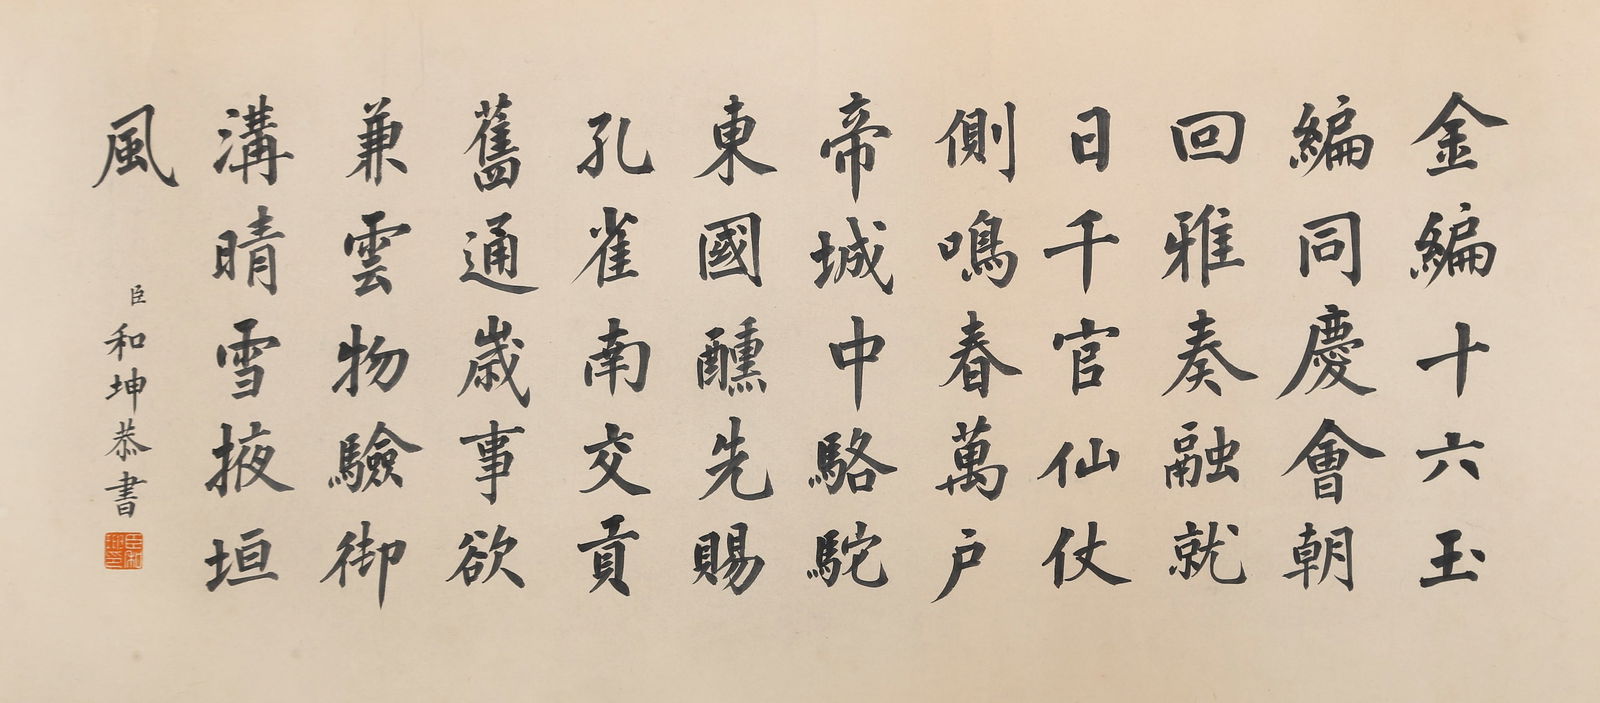 金編十六玉
編同慶會朝
回雅奏融就
日千官仙仗
側鳴春萬户
帝城中駱駝
東國醺先賜
孔雀南交貢
舊通歲事欲
兼雲物驗御
溝晴雪掖垣
風
臣和坤恭書